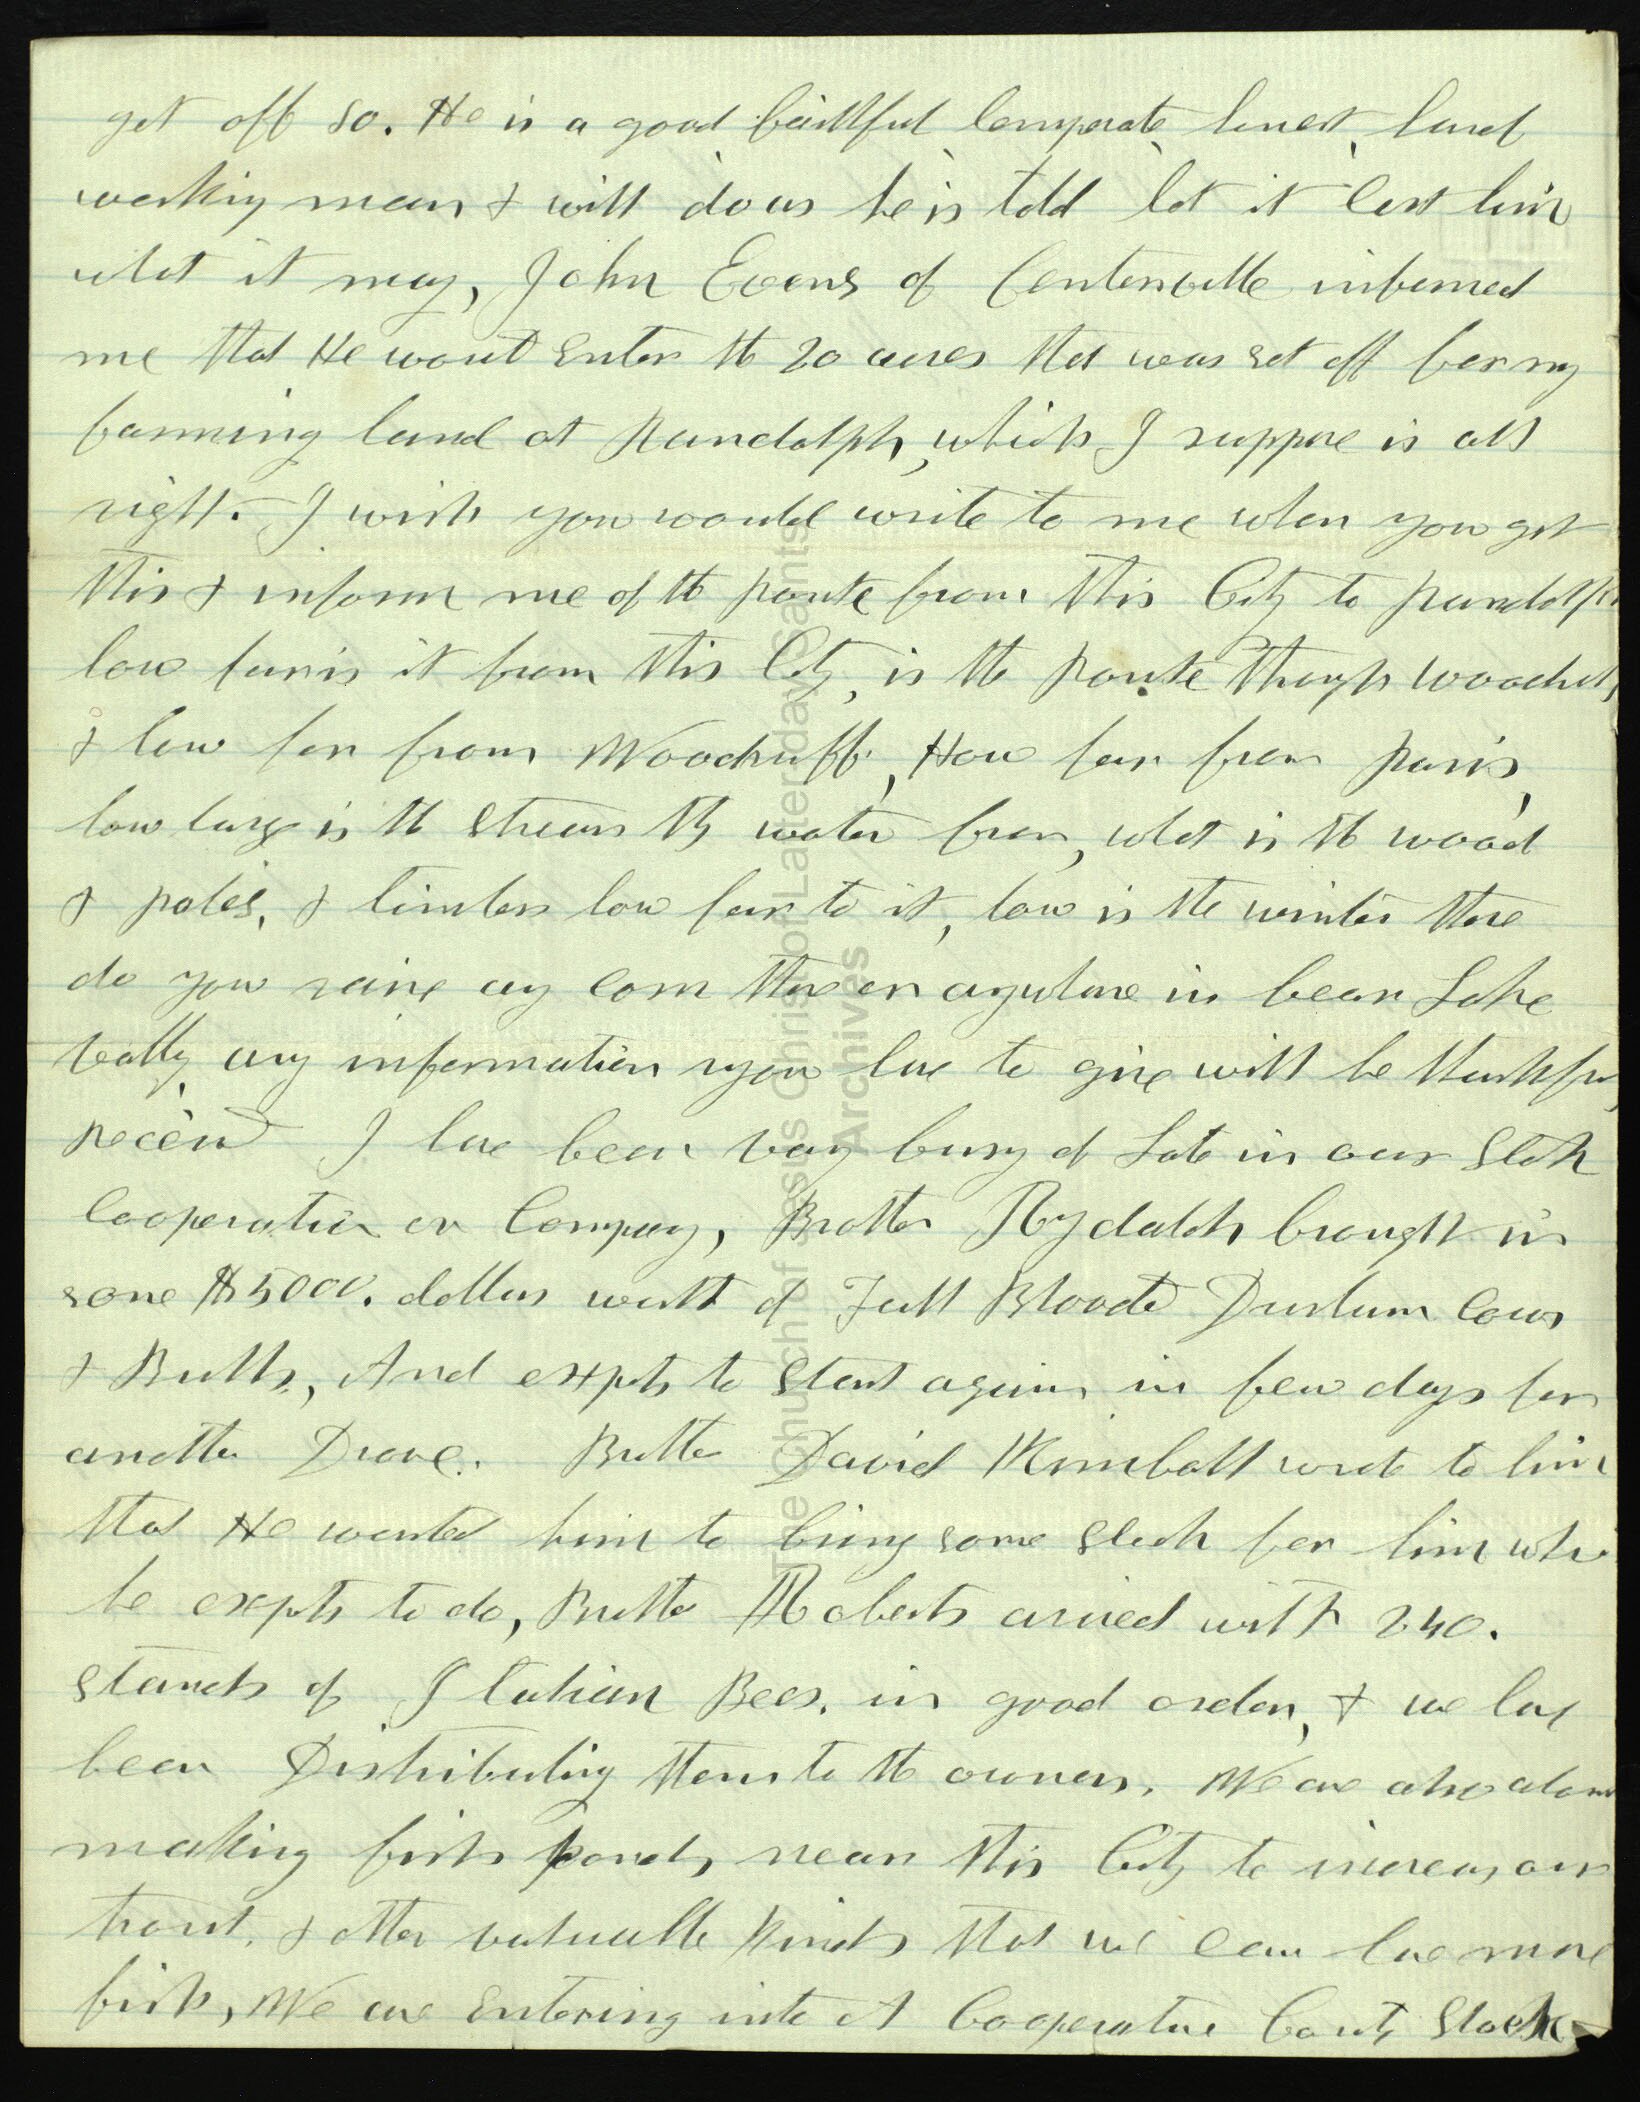 get off so. He is a good faithful temperate, honest, hard
working man & will do as he is told let it cost him
what it may, John Evans of Centerville informed
me that He would enter the 20 acres that was set off for my
farming land at Randolph, which I suppose is all
right. I wish you would write to me when you get
this & inform me of the Route from this City to Randolph
how far is it from this City, is the Route through Woodruff,
& how far from Woodruff, How far from Paris,
how large is the stream they water from, what is the wood
& poles, & timber how far to it, how is the winter there
do you raise any corn there or anywhere in bear Lake
vally, any information you have to give will be thankfully
Recievd I have been vary busy of Late in our Stock
Cooperation or Company, Brother Rydalch brought in
some $5000. dollars worth of Full Blooded Durham Cows
& Bulls, And expets to start again in few days for
another Drove. Brother David Kimball wrote to him
that He wanted him to bring some stock for him which
he expets to do, Brother Roberts arived with 240.
stands of Italian Bees. in good order, & we have
been Distributing them to the owners. We are also
making fish ponds near this City to increas our
trout, & other valuable kinds that we can have more
fish, We are Entering into A Cooperative County Stock
The Church of Jesus Christ of Latter-day Saints
Archives